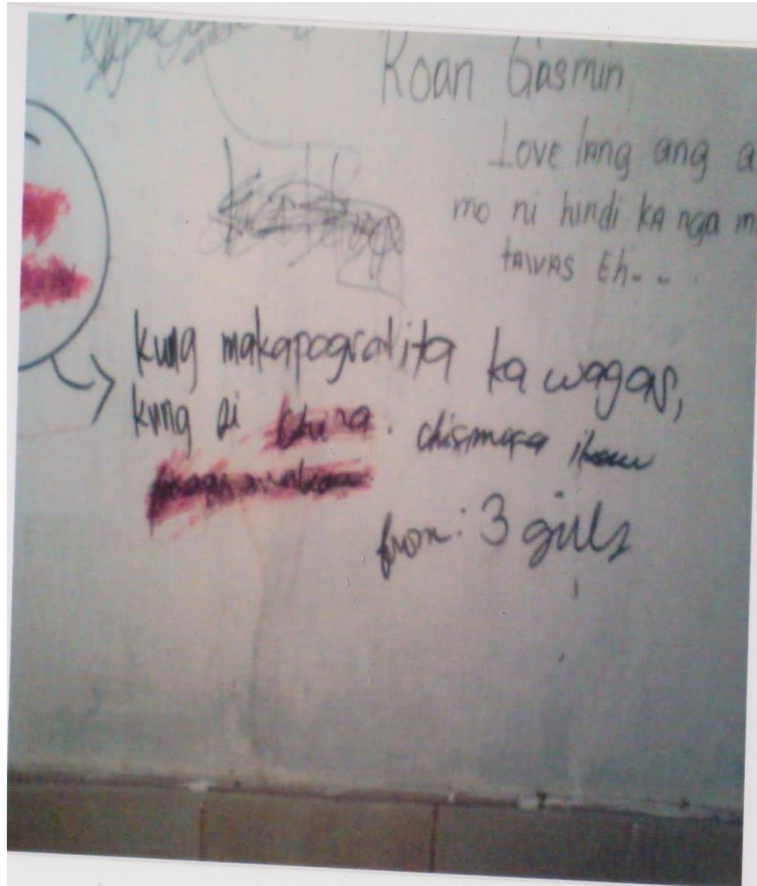 Roan Gasmin
Love lang ang a
mo ni hindi ka nga m
tawas Eh- -
kung makapagsalita ka wagas,
kung si chismosa ikaw
from: 3 girls